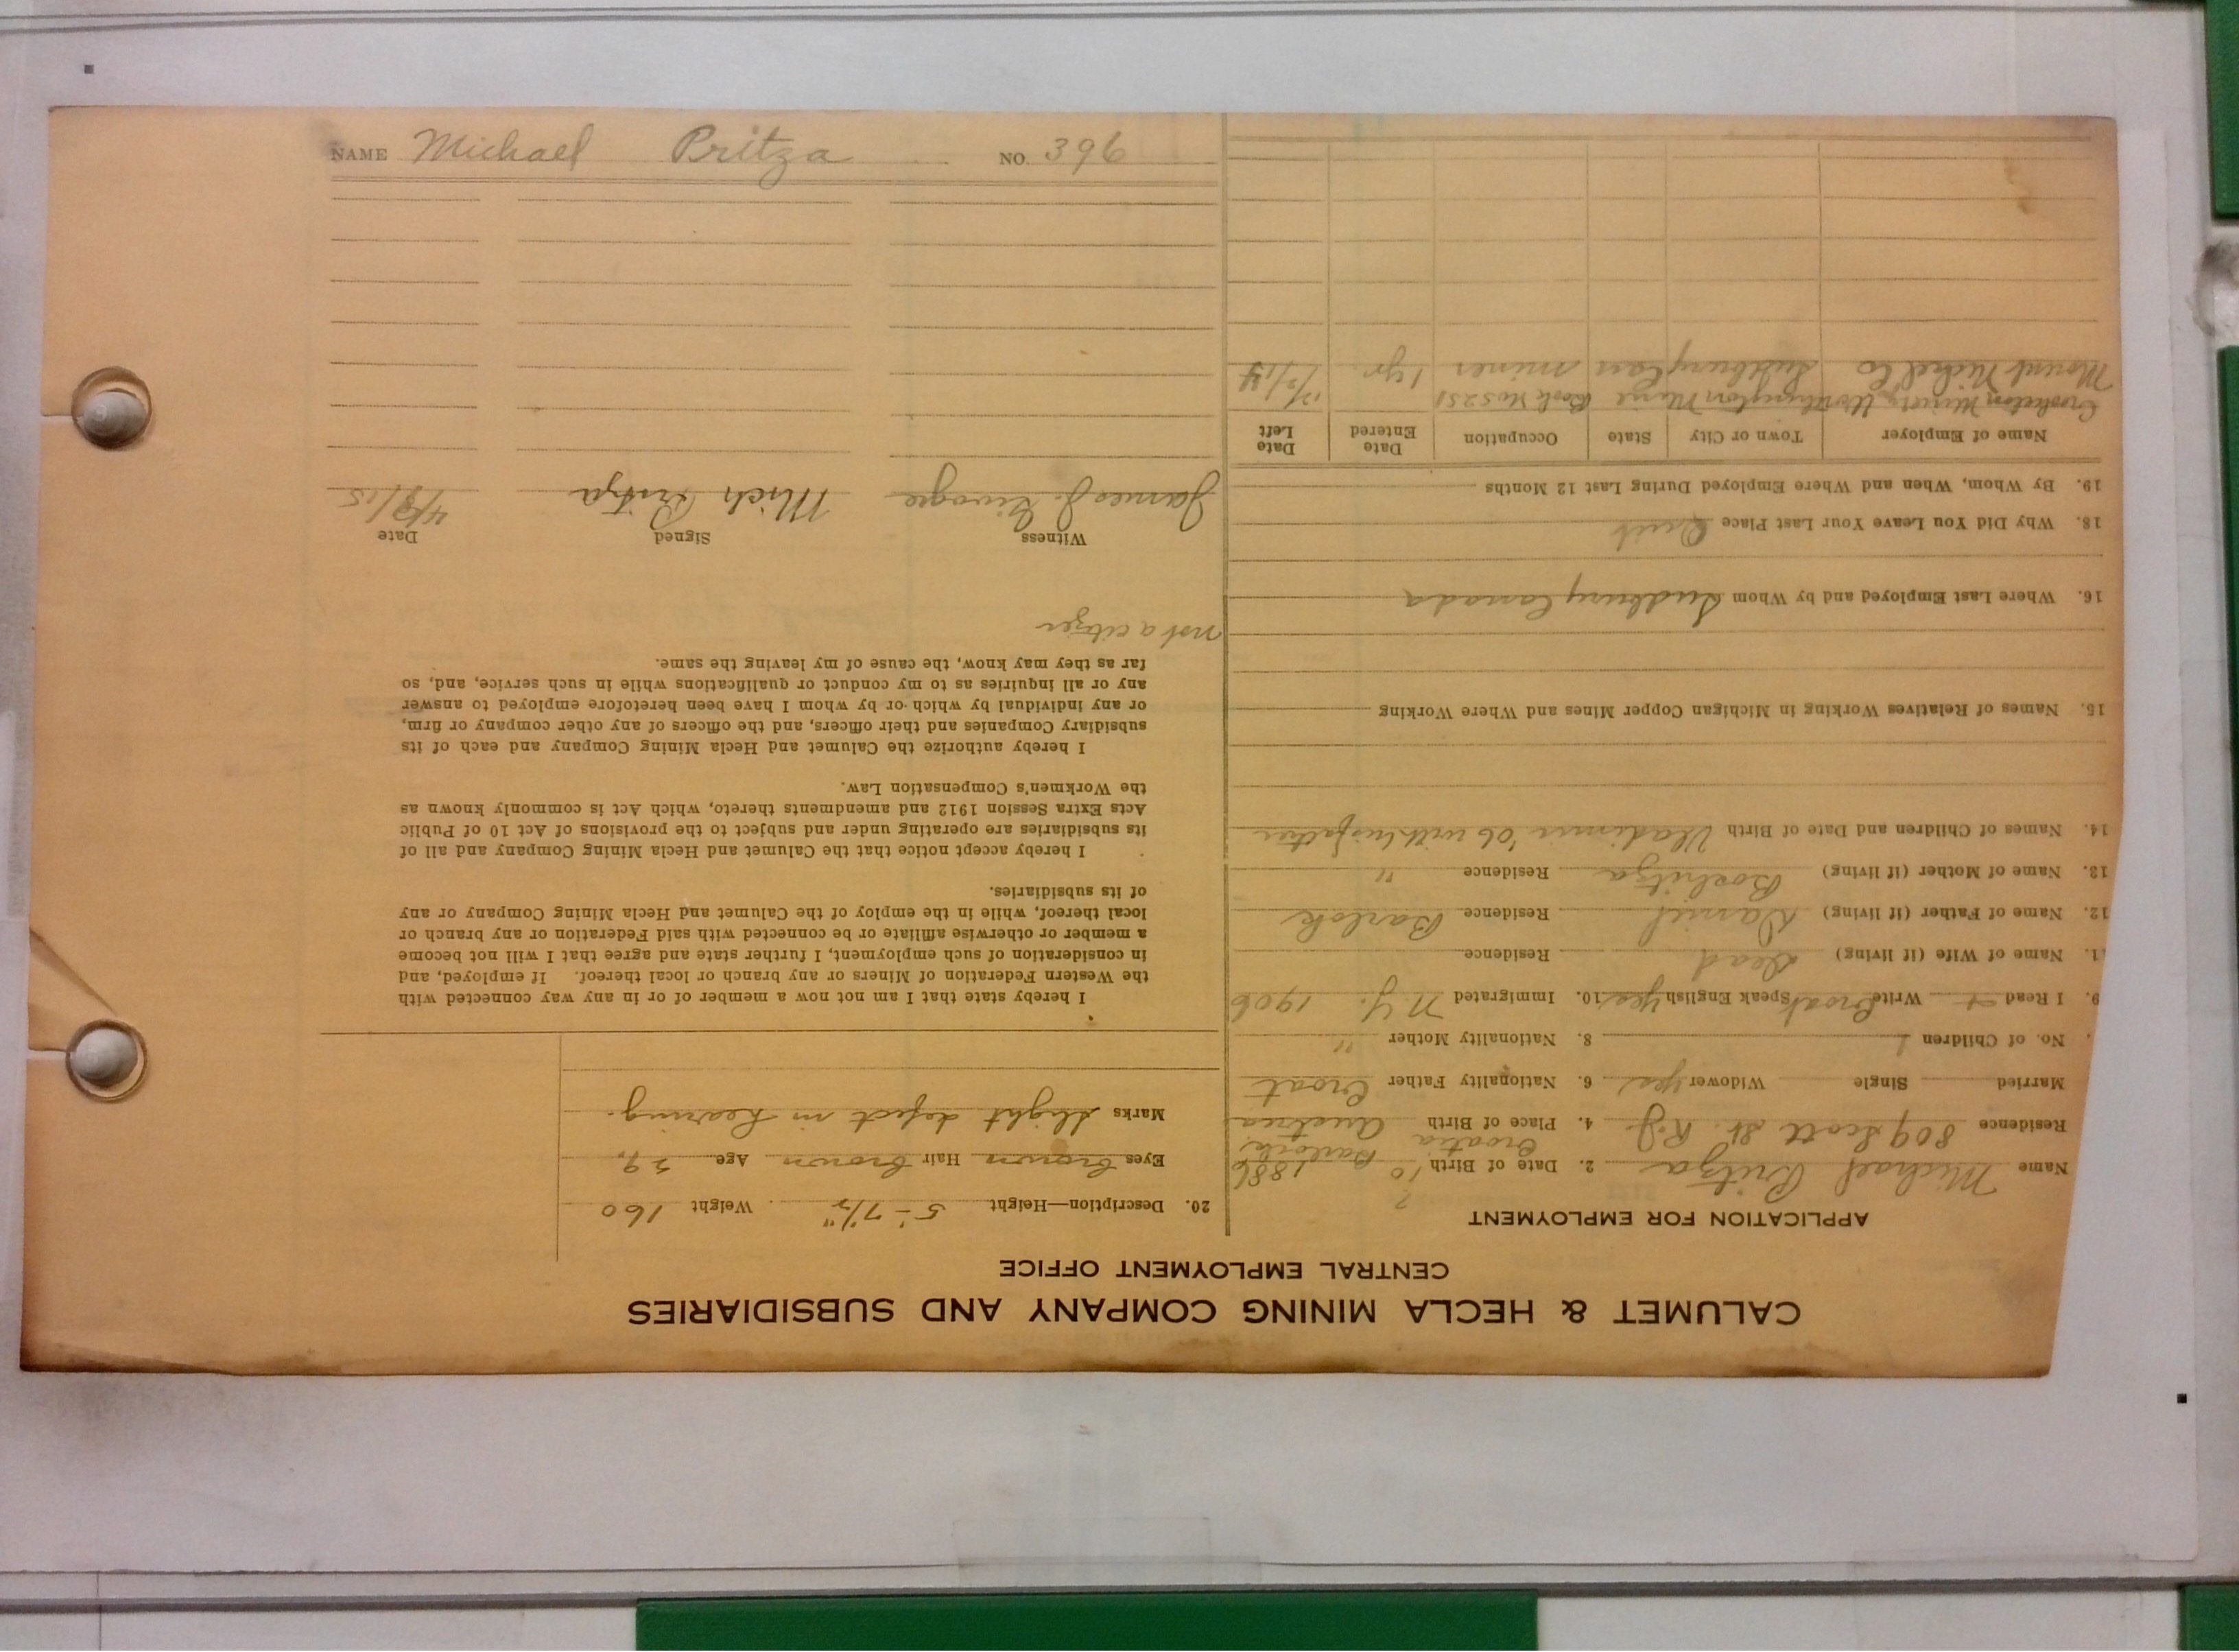 CALUMET & HECLA MINING COMPANY AND SUBSIDIARIES
CENTRAL EMPLOYMENT OFFICE
APPLICATION FOR EMPLOYMENT
Name Michael Pritza 2. Date of Birth 10 1886
Residence 809 Scott St. R.J. 4. Place of Birth Croatia Austria
Married Single Widower yes 6. Nationality Father Croat
No. of Children 1 8. Nationality Mother "
9. I Read + Write Croat Speak English yes 10. Immigrated N.Y. 1906
11. Name of Wife (if living) Dead Residence
12. Name of Father (if living) Daniel Residence Barlok
13. Name of Mother (if living) Residence "
14. Names of Children and Date of Birth Vladimir '06 with his father
15. Names of Relatives Working in Michigan Copper Mines and Where Working
16. Where Last Employed and by Whom Sudbury Canada
18. Why Did You Leave Your Last Place Quit
19. By Whom, When and Where Employed During Last 12 Months
Name of Employer Town or City State Occupation Date Entered Date Left
Worthington Mine
Mound Nickel Co Sudbury Can miner 1 yr.
20. Description—Height 5'-7½" Weight 160
Eyes brown Hair brown Age 29
Marks slight defect in hearing.
I hereby state that I am not now a member of or in any way connected with
the Western Federation of Miners or any branch or local thereof. If employed, and
in consideration of such employment, I further state and agree that I will not become
a member or otherwise affiliate or be connected with said Federation or any branch or
local thereof, while in the employ of the Calumet and Hecla Mining Company or any
of its subsidiaries.
I hereby accept notice that the Calumet and Hecla Mining Company and all of
its subsidiaries are operating under and subject to the provisions of Act 10 of Public
Acts Extra Session 1912 and amendments thereto, which Act is commonly known as
the Workmen's Compensation Law.
I hereby authorize the Calumet and Hecla Mining Company and each of its
subsidiary Companies and their officers, and the officers of any other company or firm,
or any individual by which or by whom I have been heretofore employed to answer
any or all inquiries as to my conduct or qualifications while in such service, and, so
far as they may know, the cause of my leaving the same.
not a citizen
Witness Signed Date
James J. Mich Pritza 4/8/15
NAME Michael Pritza NO. 396